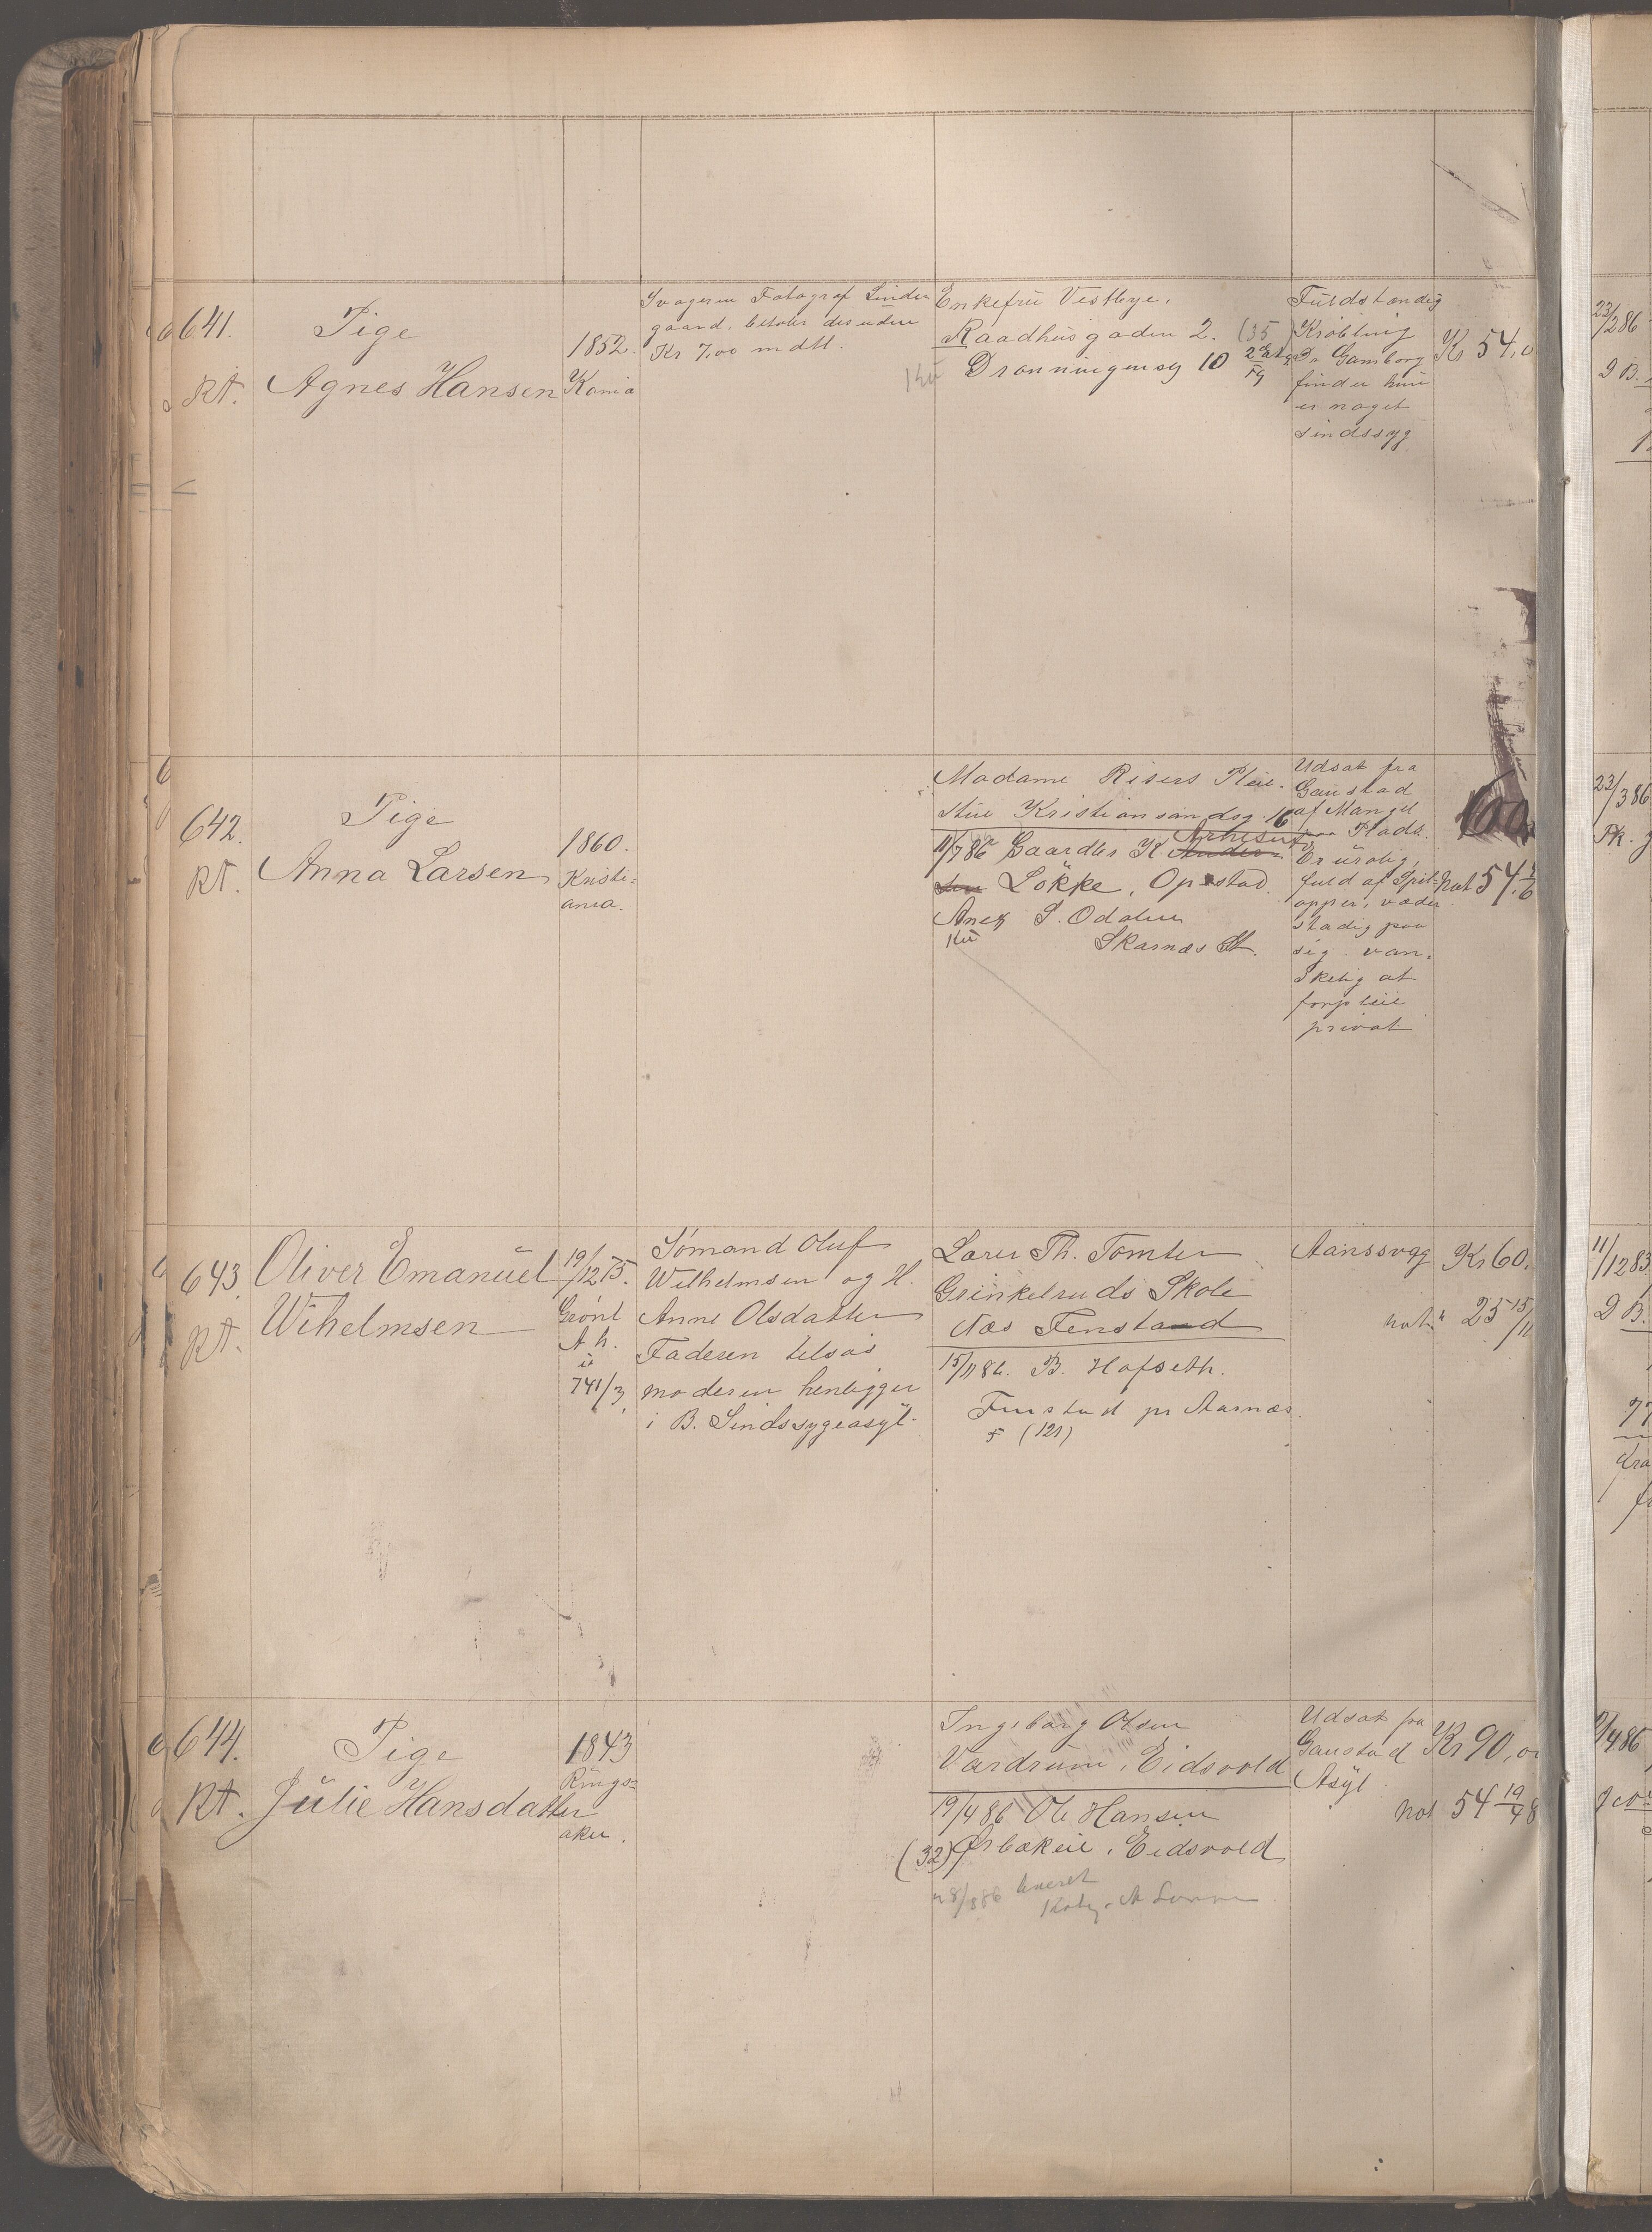 641.
Rt.
Pige
Agnes Hansen
1852.
Kania
Svogeren Fotograf Linde
gaard, betaler desuden
Kr 7,00 mdtl.
Enkefru Vestbye,
Raadhusgaden 2. (35)
Dronningensg 10
Fuldstændig
Krøbling
Dr Gamborg
finder hun
er noget
sindssyg
Kr 54,0
23/286
642.
Rt.
Pige
Anna Larsen
1860.
Kristi=
ania.
Madame Risers Pleie
stue Kristiansandsg. 16
11/786 Gaardbr K
Løkke, Opstad.
Anex S. Odalen
Skarnæs St.
Udsat fra
Gaustad
af Mangel
paa Plads.
Er urolig,
fuld af Spit-
opper, væder
stadig paa
sig. van-
skelig at
forpleie
privat
not 54
23/386
643.
Rt.
Oliver Emanuel
Wihelmsen
19/1275.
Grønl
A h.
741/3
Sømand Oluf
Wilhelmsen og H.
Anne Olsdatter
Faderen tilsøs
moderen henligger
i B. Sindssygeasyl.
Lærer Th. Tomter
Grinkelruds Skole
Næs Fenstad
15/1186. B. Hofseth.
Finstad pr Aarnæs.
(121)
Aanssvag
Kr 60.
not. 25 15/11
11/1283
644.
Rt.
Pige
Julie Hansdatter
1843
Rings=
aker.
Ingeborg Olsen
Vardrum, Eidsvold
19/486 Ole Hansen
(32) Ørbækeie, Eidsvold
Udsat fra
Gaustad
Asyl
Kr 90,0
not 54 19/4 8
/486